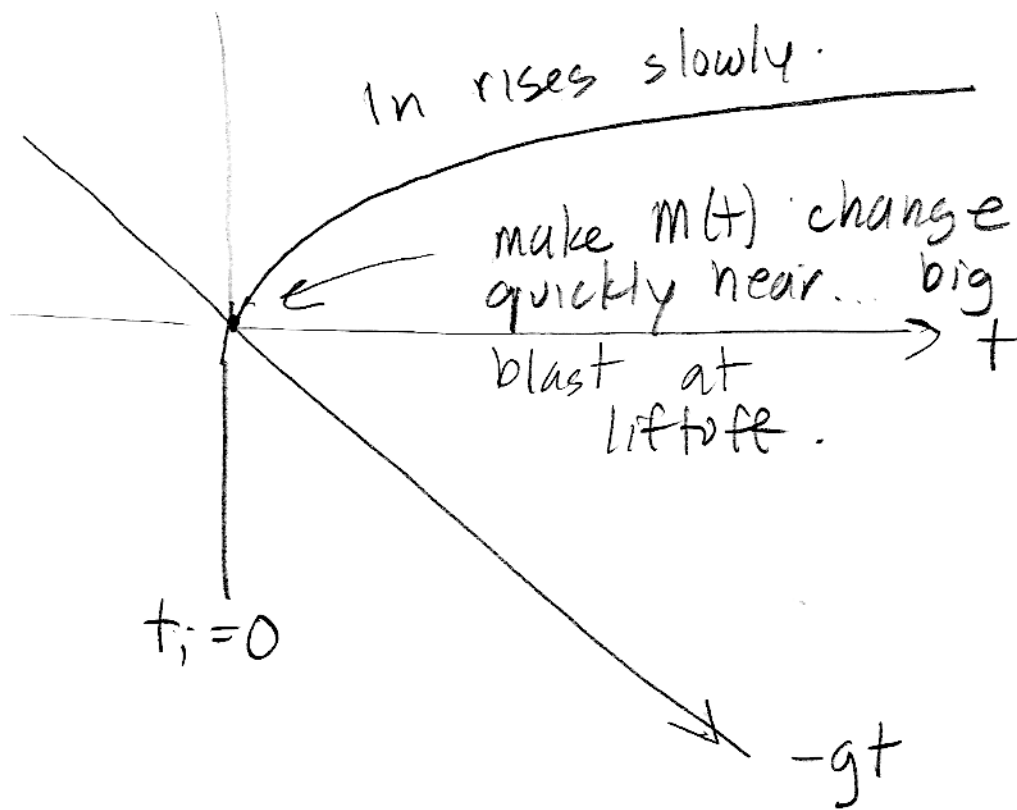 ln rises slowly.
make m(t) change
quickly near... big
t
blast at
liftoff.
ti=0
-gt